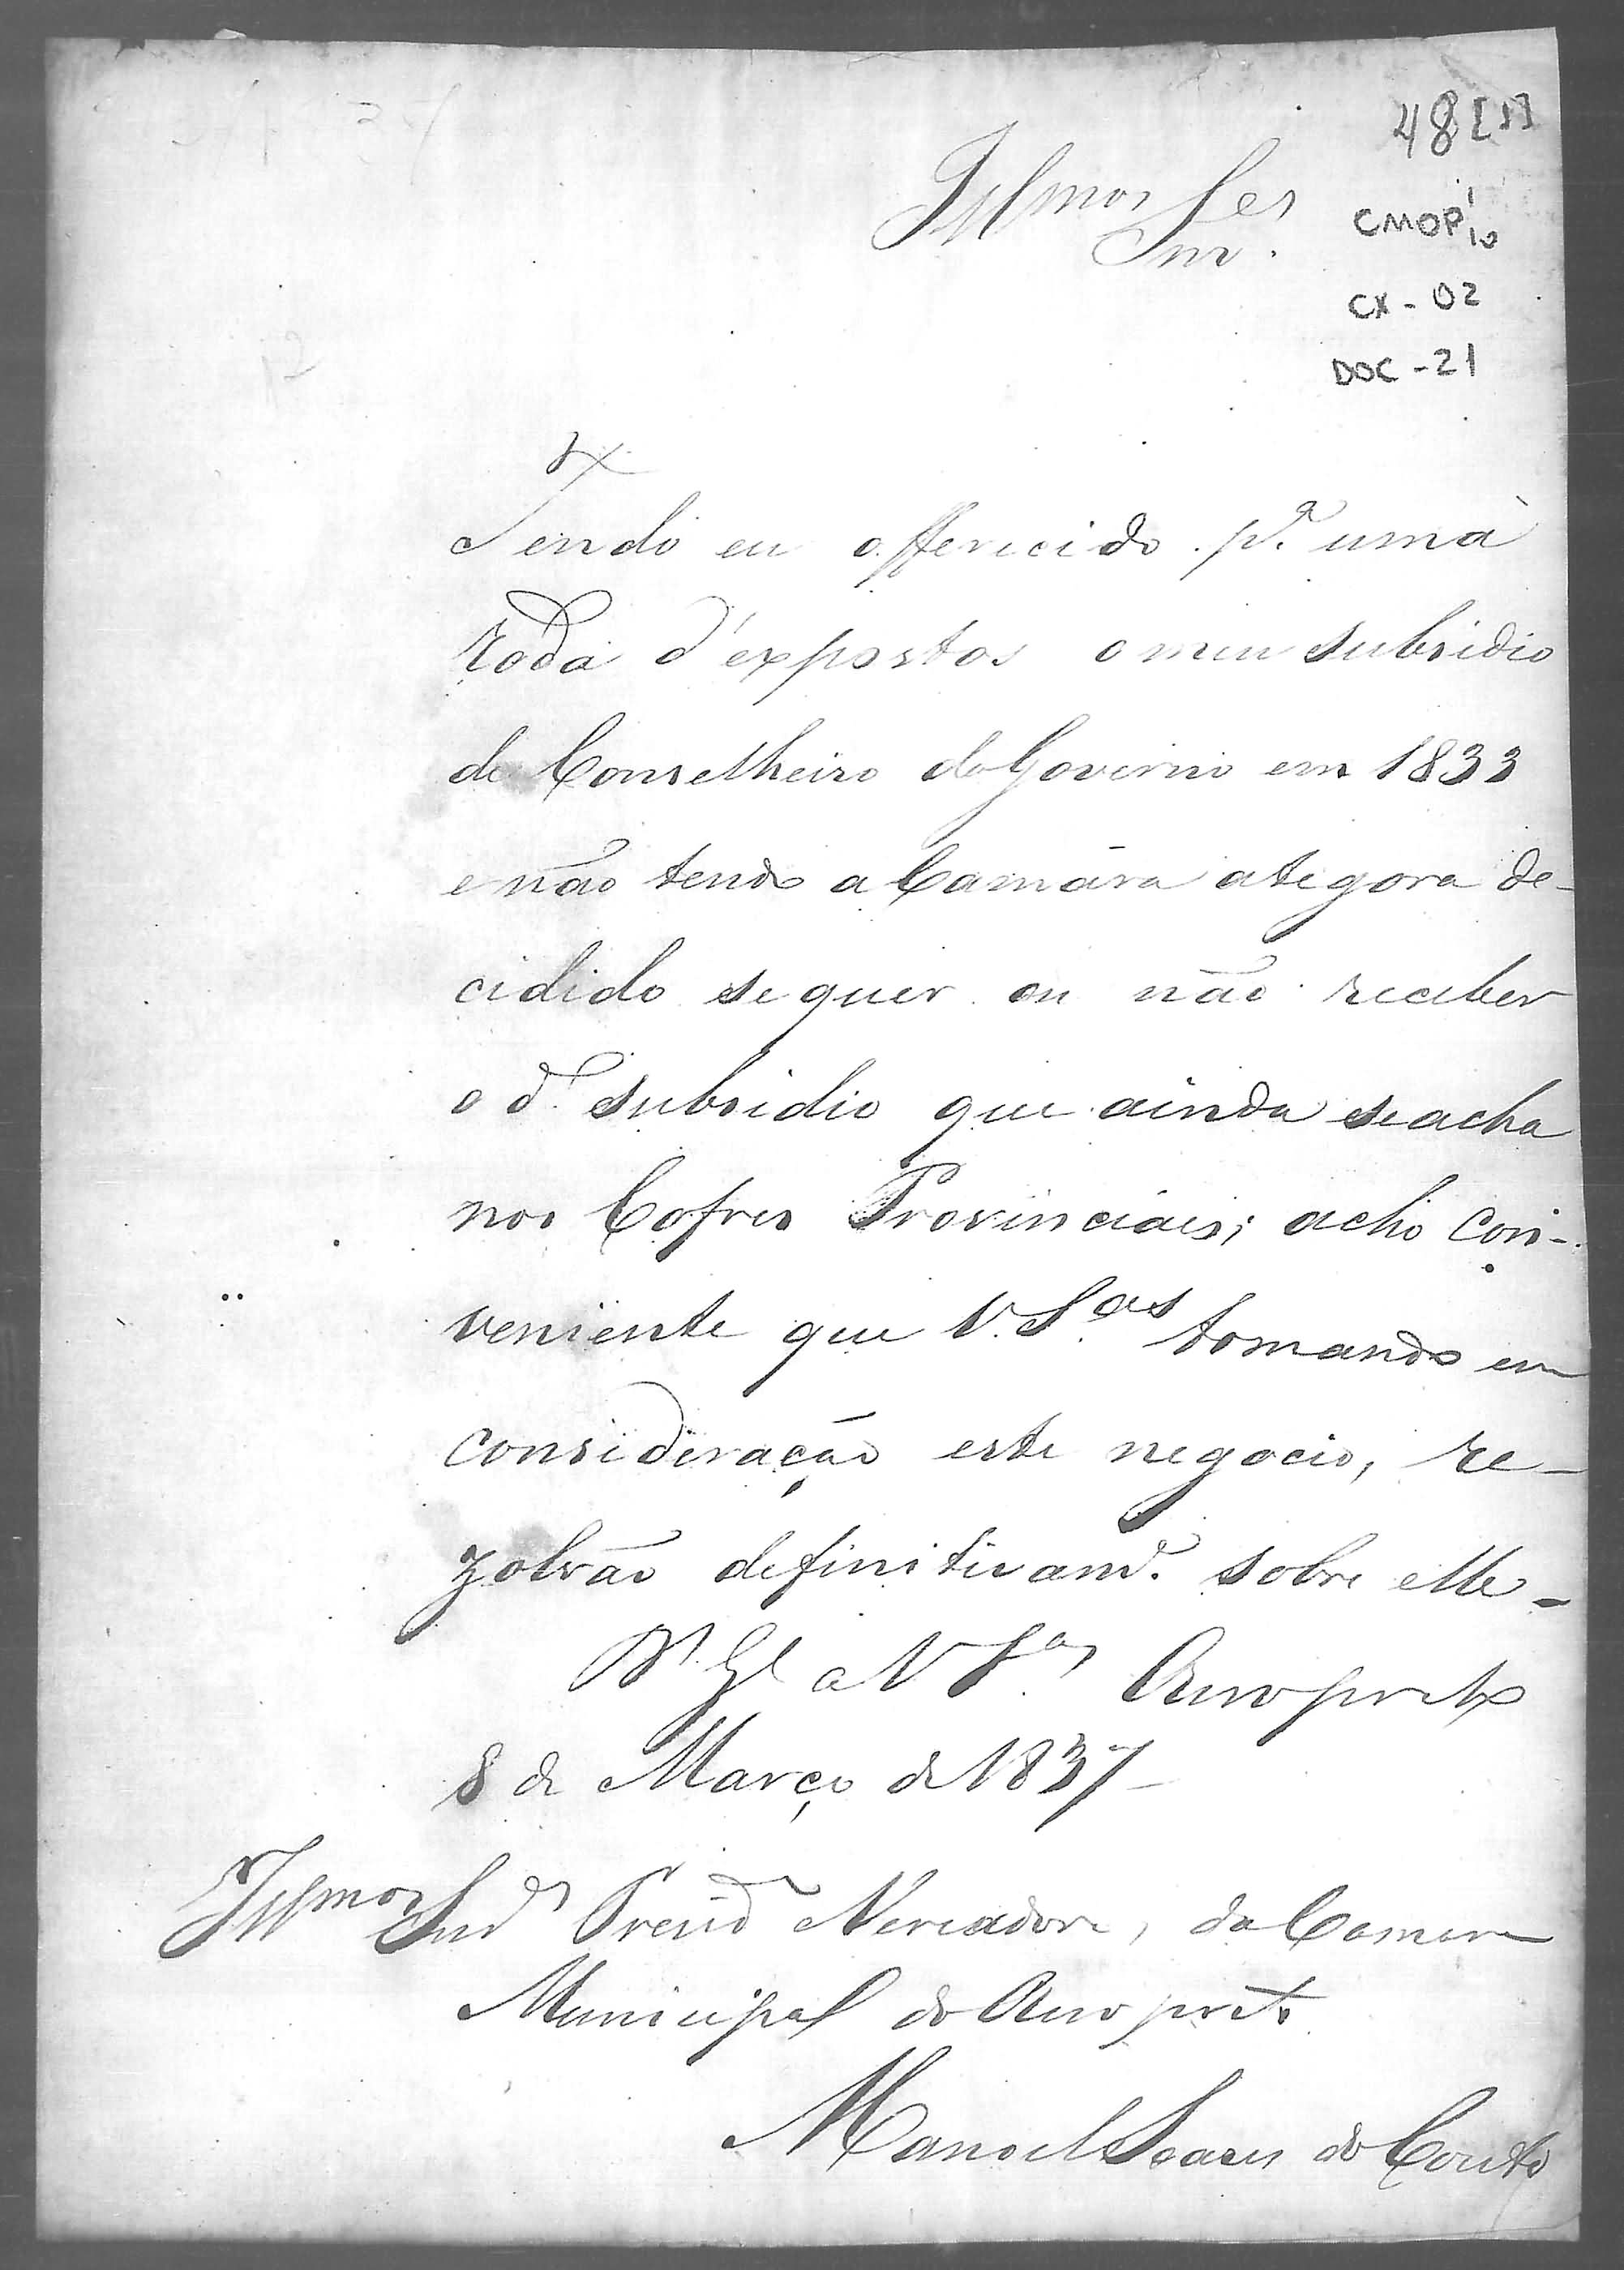 48 [1]
Illmos Snres
CMOP 1/10
CX - 02
DOC - 21
Tendo eu offerecido pa. uma
roda d'expostos o meu subsidio
de Conselheiro do Governo em 1833
e não tendo a Camara ategora de-
cidido se quer ou não receber
o do. subsidio que ainda se acha
nos Cofres Provinciaes; acho con-
veniente que V. Sas tomando em
consideração este negocio, re-
zolvão definitivame. sobre elle -
Ds. Ge a V Sas Ouro preto
8 de Março de 1837 -
Illmos Snres Presid Vereadores da Camara
Municipal do Ouro preto
Manoel Soares do Couto